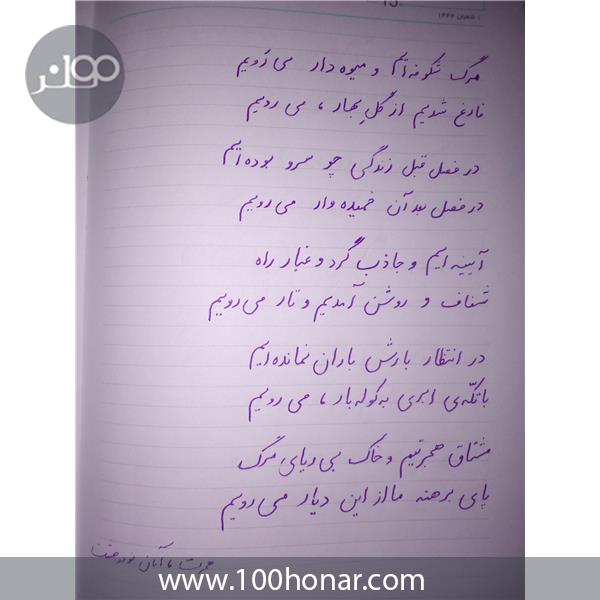 ۱ شعبان ۱۴۴۲
صد هنر
مرگ شکوفه‌ایم و میوه دار می رویم
فارغ شدیم از گلِ بهار، می رویم
در فصل قبل زندگی چو سرو بوده‌ایم
در فصل بعد آن خمیده وار می رویم
آیینه ایم و جاذب گرد و غبار راه
شفاف و روشن آمدیم و تار می رویم
در انتظار بارش باران نمانده‌ایم
با تکّه‌ی ابری به کوله بار، می رویم
مشتاق هجرتیم و خاک بی ریای مرگ
پای برهنه ما از این دیار می رویم
www.100honar.com